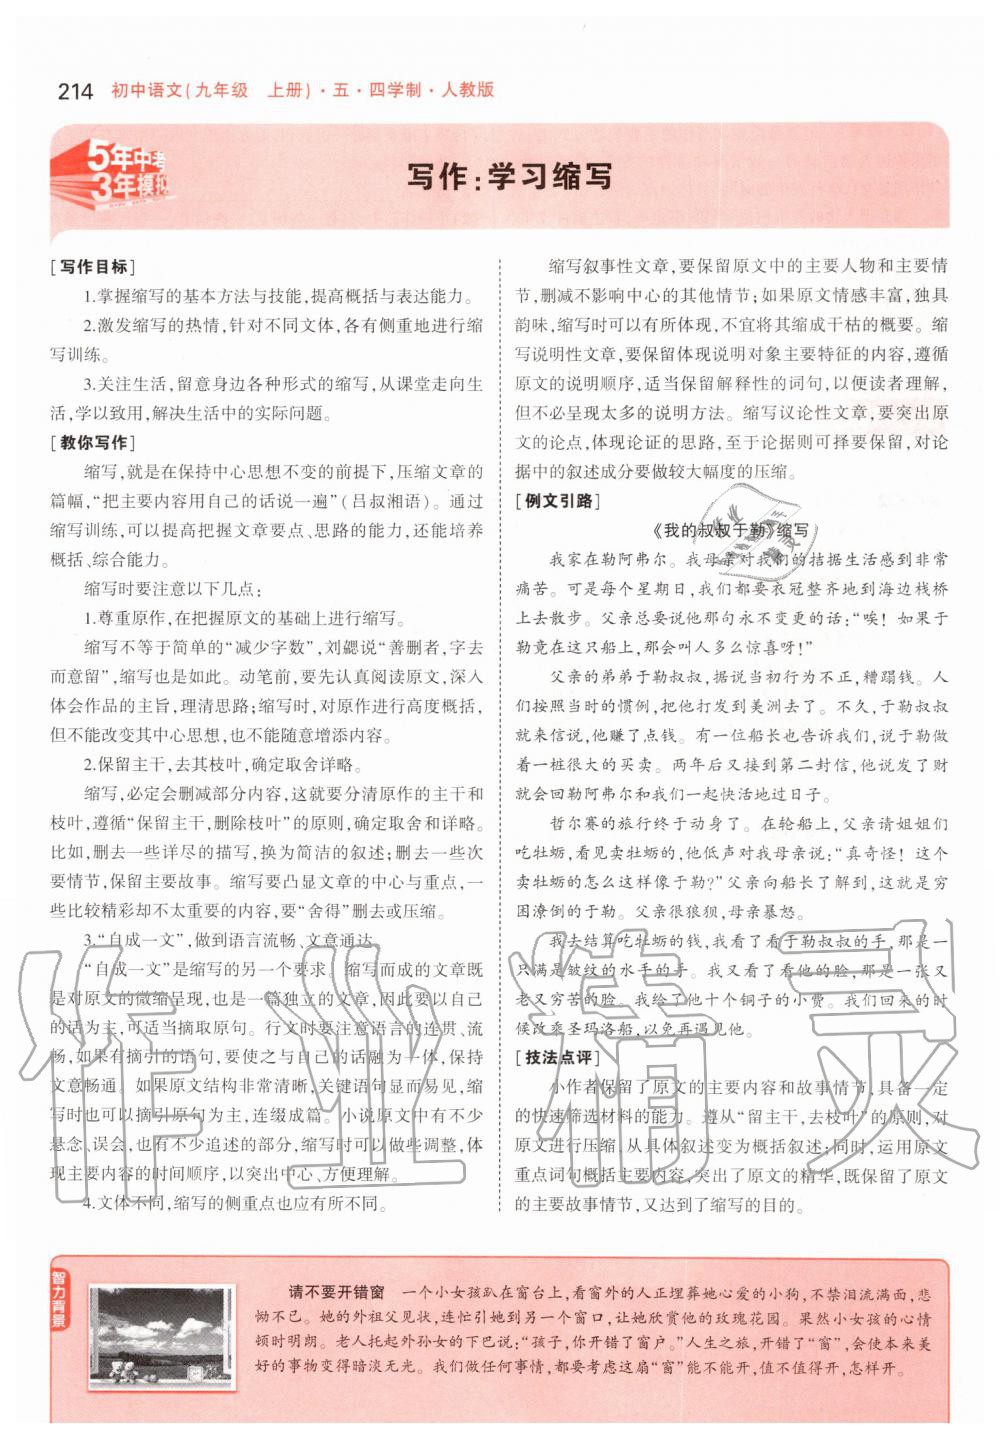 214 初中语文(九年级 上册)·五·四学制·人教版
5年中考
3年模拟
写作:学习缩写
[写作目标]
1.掌握缩写的基本方法与技能,提高概括与表达能力。
2.激发缩写的热情,针对不同文体,各有侧重地进行缩
写训练。
3.关注生活,留意身边各种形式的缩写,从课堂走向生
活,学以致用,解决生活中的实际问题。
[教你写作]
缩写,就是在保持中心思想不变的前提下,压缩文章的
篇幅,“把主要内容用自己的话说一遍”(吕叔湘语)。通过
缩写训练,可以提高把握文章要点、思路的能力,还能培养
概括、综合能力。
缩写时要注意以下几点:
1.尊重原作,在把握原文的基础上进行缩写。
缩写不等于简单的“减少字数”,刘勰说“善删者,字去
而意留”,缩写也是如此。动笔前,要先认真阅读原文,深入
体会作品的主旨,理清思路;缩写时,对原作进行高度概括,
但不能改变其中心思想,也不能随意增添内容。
2.保留主干,去其枝叶,确定取舍详略。
缩写,必定会删减部分内容,这就要分清原作的主干和
枝叶,遵循“保留主干,删除枝叶”的原则,确定取舍和详略。
比如,删去一些详尽的描写,换为简洁的叙述;删去一些次
要情节,保留主要故事。缩写要凸显文章的中心与重点,一
些比较精彩却不太重要的内容,要“舍得”删去或压缩。
3.“自成一文”,做到语言流畅、文章通达。
“自成一文”是缩写的另一个要求。缩写而成的文章既
是对原文的微缩呈现,也是一篇独立的文章,因此要以自己
的话为主,可适当摘取原句。行文时要注意语言的连贯、流
畅,如果有摘引的语句,要使之与自己的话融为一体,保持
文意畅通。如果原文结构非常清晰,关键语句显而易见,缩
写时也可以摘引原句为主,连缀成篇。小说原文中有不少
悬念、误会,也有不少追述的部分,缩写时可以做些调整,体
现主要内容的时间顺序,以突出中心、方便理解。
4.文体不同,缩写的侧重点也应有所不同。
缩写叙事性文章,要保留原文中的主要人物和主要情
节,删减不影响中心的其他情节;如果原文情感丰富,独具
韵味,缩写时可以有所体现,不宜将其缩成干枯的概要。缩
写说明性文章,要保留体现说明对象主要特征的内容,遵循
原文的说明顺序,适当保留解释性的词句,以便读者理解,
但不必呈现太多的说明方法。缩写议论性文章,要突出原
文的论点,体现论证的思路,至于论据则可择要保留,对论
据中的叙述成分要做较大幅度的压缩。
[例文引路]
《我的叔叔于勒》缩写
我家在勒阿弗尔。我母亲对我们的拮据生活感到非常
痛苦。可是每个星期日,我们都要衣冠整齐地到海边栈桥
上去散步。父亲总要说他那句永不变更的话:“唉!如果于
勒竟在这只船上,那会叫人多么惊喜呀!”
父亲的弟弟于勒叔叔,据说当初行为不正,糟蹋钱。人
们按照当时的惯例,把他打发到美洲去了。不久,于勒叔叔
就来信说,他赚了点钱。有一位船长也告诉我们,说于勒做
着一桩很大的买卖。两年后又接到第二封信,他说发了财
就会回勒阿弗尔和我们一起快活地过日子。
哲尔赛的旅行终于动身了。在轮船上,父亲请姐姐们
吃牡蛎,看见卖牡蛎的,他低声对我母亲说:“真奇怪!这个
卖牡蛎的怎么这样像于勒?”父亲向船长了解到,这就是穷
困潦倒的于勒。父亲很狼狈,母亲暴怒。
我去结算吃牡蛎的钱,我看了看于勒叔叔的手,那是一
只满是皱纹的水手的手。我又看了看他的脸,那是一张又
老又穷苦的脸。我给了他十个铜子的小费。我们回来的时
候改乘圣玛洛船,以免再遇见他。
[技法点评]
小作者保留了原文的主要内容和故事情节,具备一定
的快速筛选材料的能力。遵从“留主干,去枝叶”的原则,对
原文进行压缩,从具体叙述变为概括叙述;同时,运用原文
重点词句概括主要内容,突出了原文的精华,既保留了原文
的主要故事情节,又达到了缩写的目的。
作业精灵
智力背景
请不要开错窗 一个小女孩趴在窗台上,看窗外的人正埋葬她心爱的小狗,不禁泪流满面,悲
恸不已。她的外祖父见状,连忙引她到另一个窗口,让她欣赏他的玫瑰花园。果然小女孩的心情
顿时明朗。老人托起外孙女的下巴说:“孩子,你开错了窗户。”人生之旅,开错了“窗”,会使本来美
好的事物变得暗淡无光。我们做任何事情,都要考虑这扇“窗”能不能开,值不值得开,怎样开。